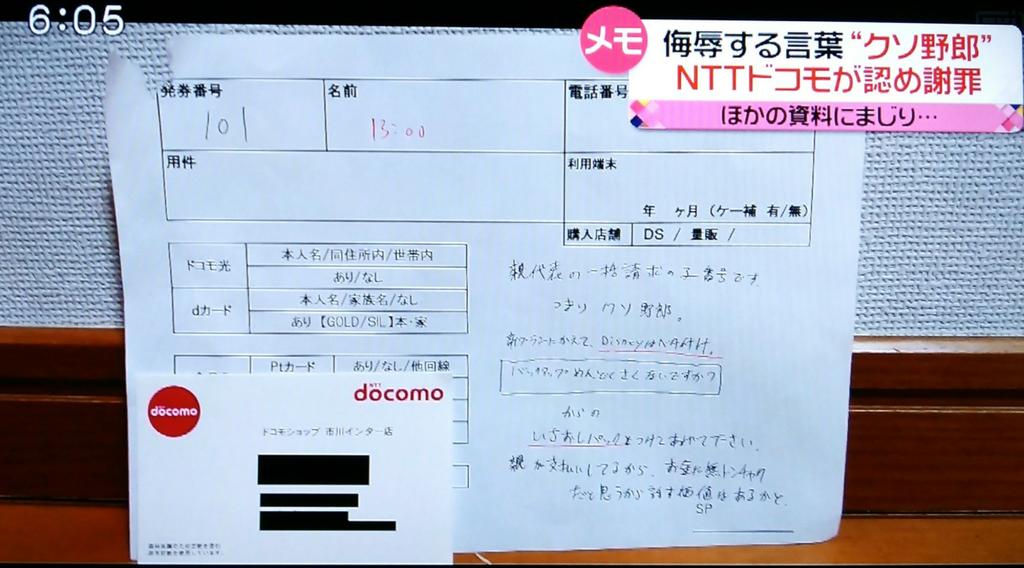 6:05
メモ
侮辱する言葉“クソ野郎”
NTTドコモが認め謝罪
ほかの資料にまじり…
発券番号
101
名前
13:00
電話番号
用件
利用端末
年 ヶ月 (ケー補 有/無)
購入店舗
DS / 量販 /
ドコモ光
本人名/同住所内/世帯内
あり/なし
dカード
本人名/家族名/なし
あり【GOLD/SIL】本・家
Ptカード
あり/なし/他回線
親代表の一括請求の子番号です。
つまり クソ野郎。
新プランにかえて、Disneyはベタ付け。
バックアップめんどくさくないですか?
からの
いちおしパックをつけてあげて下さい。
親が支払いしてるから、お金に無トンチャク
だと思うから話す価値はあるかと。
SP
docomo
NTT
docomo
ドコモショップ 市川インター店